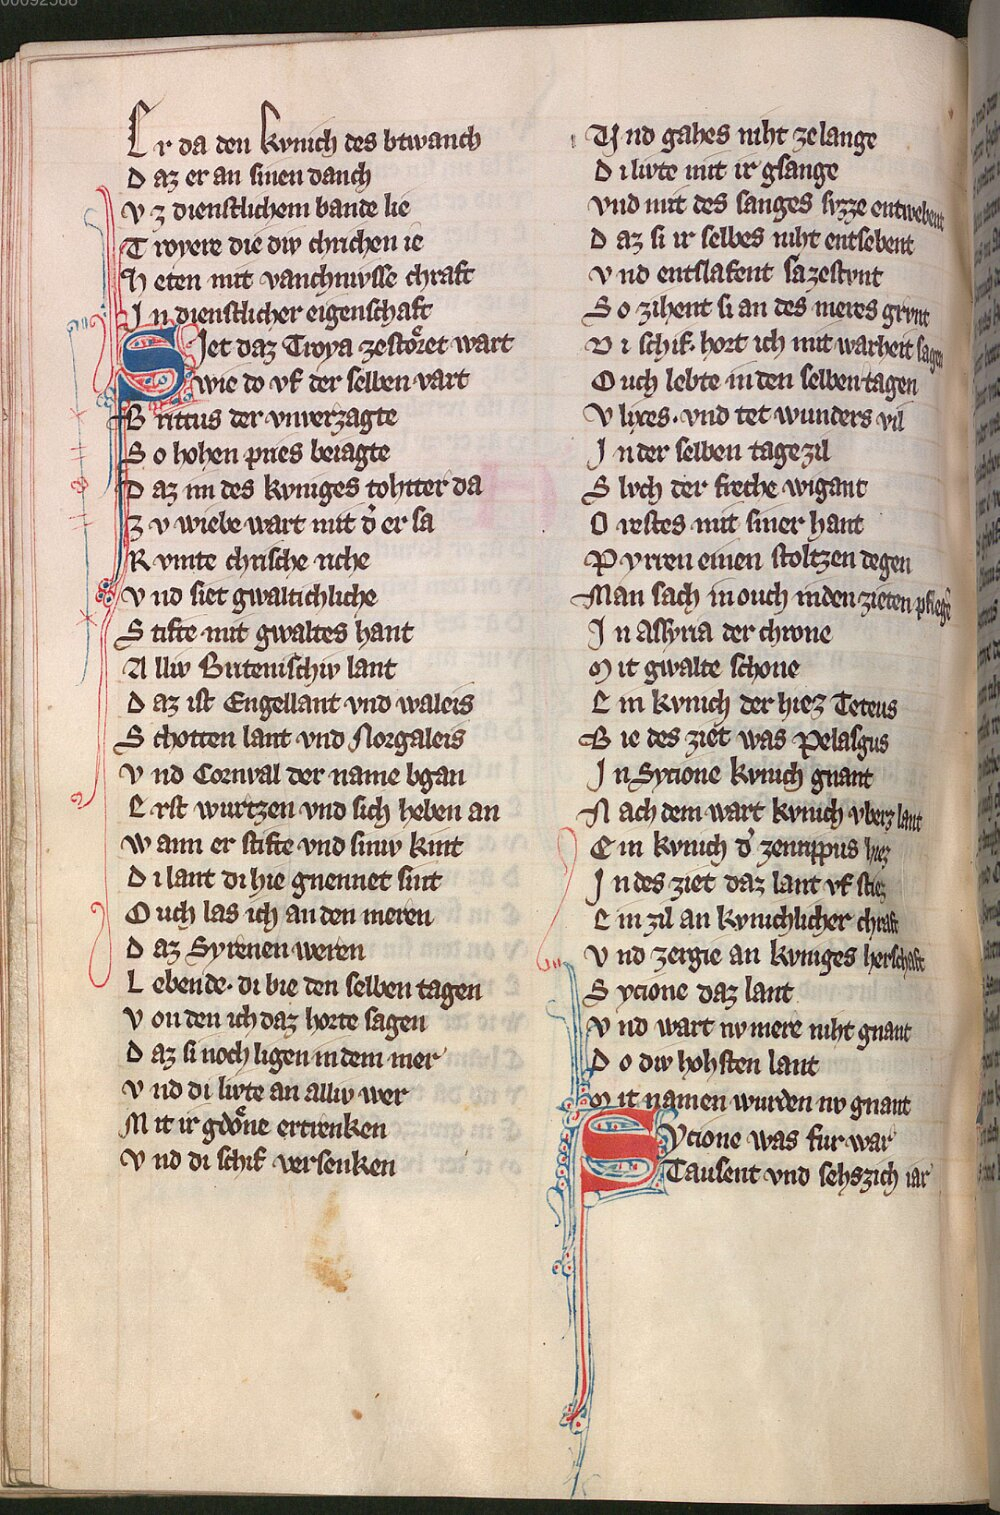 00092588
Er da den kvnich des btwanch
D az er an sinen danch
V z dienstlichem bande lie
T royere die div chrichen ie
H eten mit vanchnvsse chraft
J n dienstlicher eigenschaft
Siet daz Troya zestoͤret wart
wie do vf der selben vart
B rittus der vnverzagte
S o hohen pries beiagte
D az im des kvniges tohtter da
Z v wiebe wart mit d̾ er sa
R vmte chrische riche
V nd siet gwaltichliche
S tifte mit gwaltes hant
A lliv Britenischiv lant
D az ist Engellant vnd waleis
S chotten lant vnd Norgaleis
V nd Cornval der name bgan
E rst wurtzen vnd sich heben an
W ann er stifte vnd siniv kint
D i lant di hie gnennet sint
O uch las ich an den meren
D az Syrenen weren
L ebende· di bie den selben tagen
V on den ich daz horte sagen
D az si noch ligen in dem mer
V nd di livte an alliv wer
M it ir gdoͤne ertrenken
V nd di schif versenken
V nd gahes niht ze lange
D i livte mit ir gsange
vnd mit des sanges svzze entwebent
D az si ir selbes niht entsebent
V nd entslafent sa zestvnt
S o zihent si an des meres grvnt
D i schif· hort ich mit warheit sagen
O uch lebte in den selben tagen
V lixes· vnd tet wunders vil
J n der selben tage zil
S lvch der freche wigant
O restes mit siner hant
P yrren einen stoltzen degen
Man sach in ouch in den zieten pflegen
J n Assyria der chrone
M it gwalte schone
E in kvnich der hiez Teteus
B ie des ziet was Pelasgus
J n Sycione kvnich gnant
N ach dem wart kvnich vber z lant
E in kvnich d̾ zenrippus hiez
J n des ziet daz lant vf stiez
E in zil an kvnichlicher chraft
V nd zergie an kvniges herschaft
S ycione daz lant
V nd wart nv mere niht gnant
D o div hohsten lant
M it namen wurden nv gnant
Sycione was fur war
Tausent vnd sehszich iar